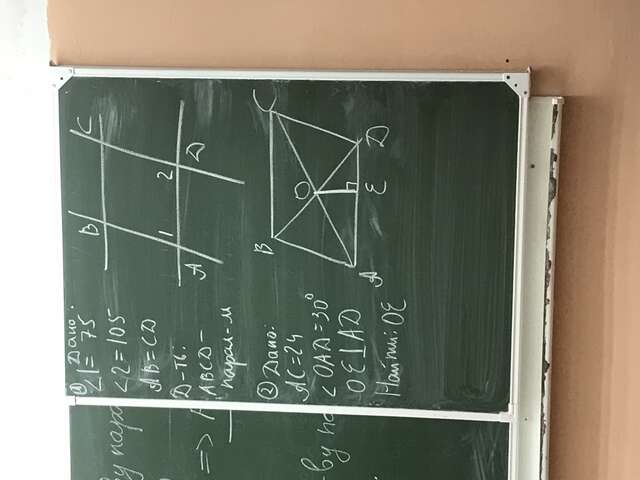 ву пара
=>
-ву па
① Дано:
∠1= 75
∠2=105
AB=CD
Д-ть:
ABCD-
парал-м
B
C
1
2
A
D
② Дано:
AC=24
∠OAD=30°
OE⊥AD
Найти: OE
B
C
O
A
E
D